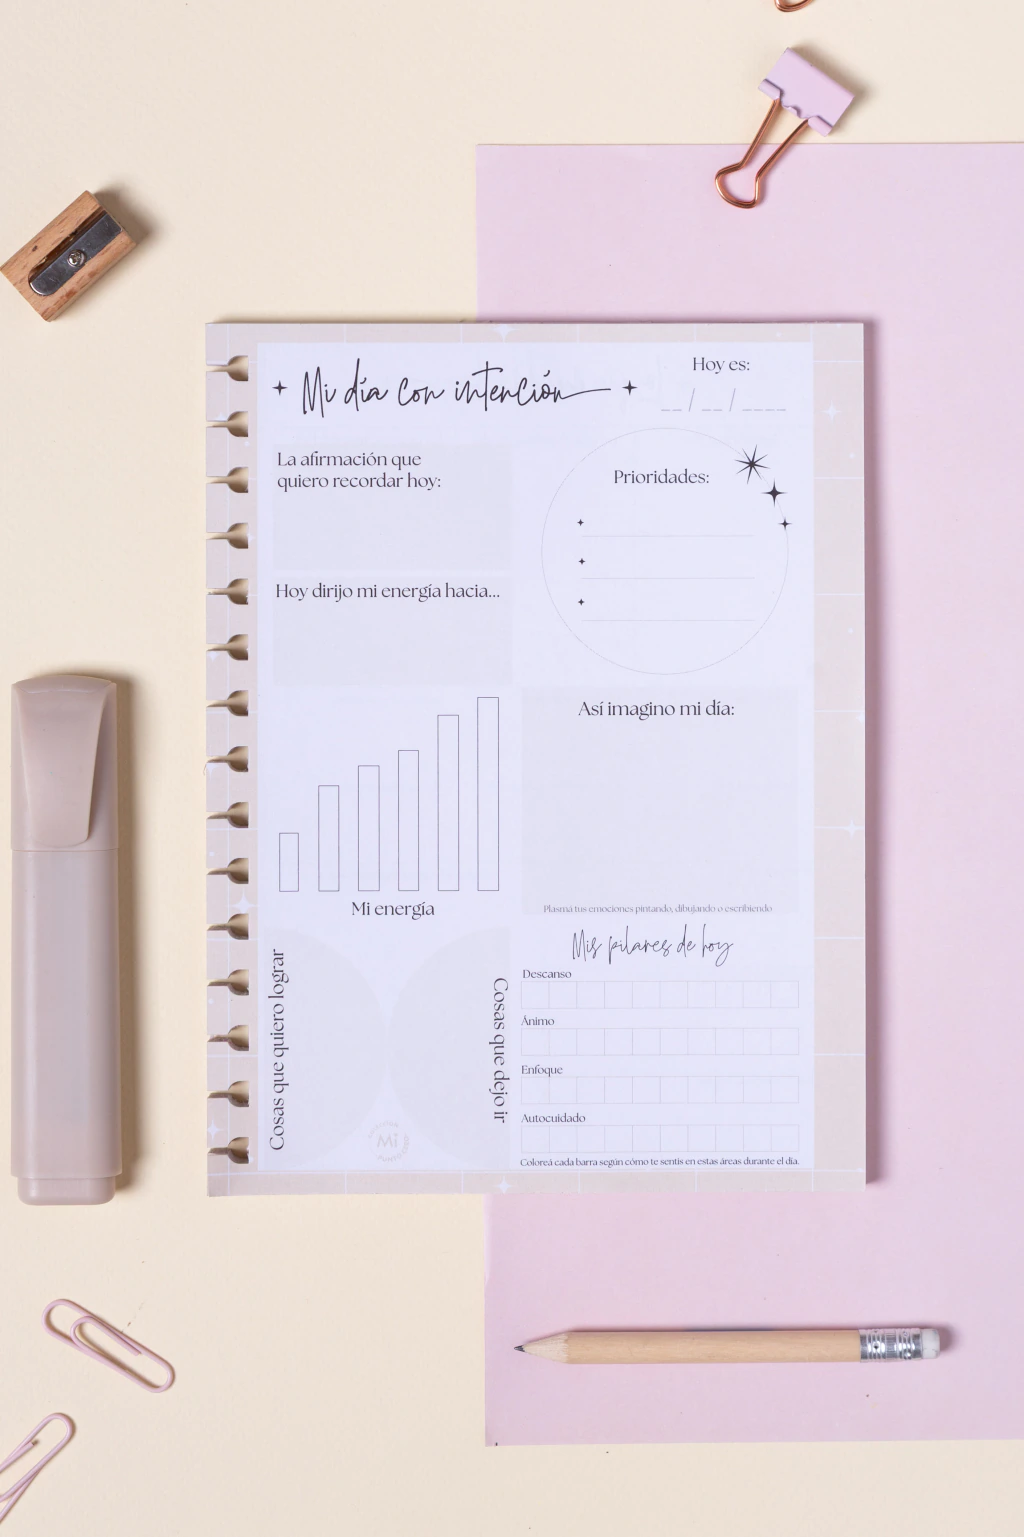 Mi día con intención
Hoy es:
__ / __ / ____
La afirmación que
quiero recordar hoy:
Prioridades:
Hoy dirijo mi energía hacia...
Así imagino mi día:
Plasmá tus emociones pintando, dibujando o escribiendo
Mi energía
Cosas que quiero lograr
Cosas que dejo ir
Mi
Mis pilares de hoy
Descanso
Ánimo
Enfoque
Autocuidado
Coloreá cada barra según cómo te sentís en estas áreas durante el día.